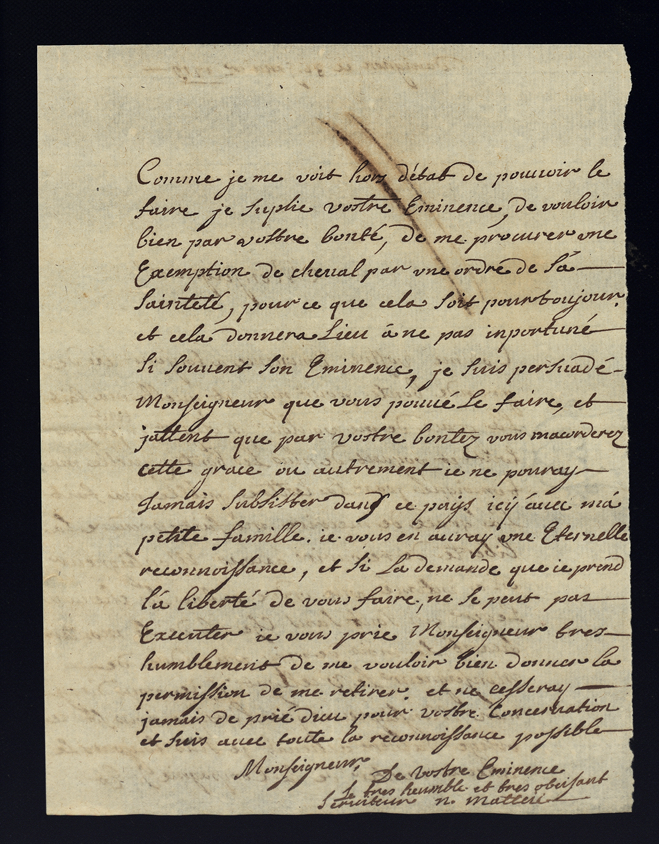 Comme je me voit hors détat de pouvoir le
faire je suplie vostre Eminence, de vouloir
bien par vostre bonté, de me procurer une
Exemption de cheval par une ordre de Sá
Sainteté, pour ce que cela soit pourtoujour,
et celá donnera Lieu á ne pas inportuné
si souvent son Eminence, je suis persuadé
Monseigneur que vous pouvé Le faire, et
jattent que par vostre bontez vous macorderez
cette grace ou autrement ie ne pouray
Jamais subsister dans ce pays icy avec má
petite famille. ie vous en auray une Eternelle
reconnoissance, et si La demande que ie prend
lá liberté de vous faire, ne se peut pas
Executer ie vous prie Monseigneur tres
humblement de me vouloir bien donner la
permission de me retirer. et ne cesseray
jamais de prié dieu pour vostre Concervation
et suis avec toute la reconnoissance possible
Monseigneur
De vostre Eminence
Le tres heumble et tres obeissant
Serviteur n. Matteii